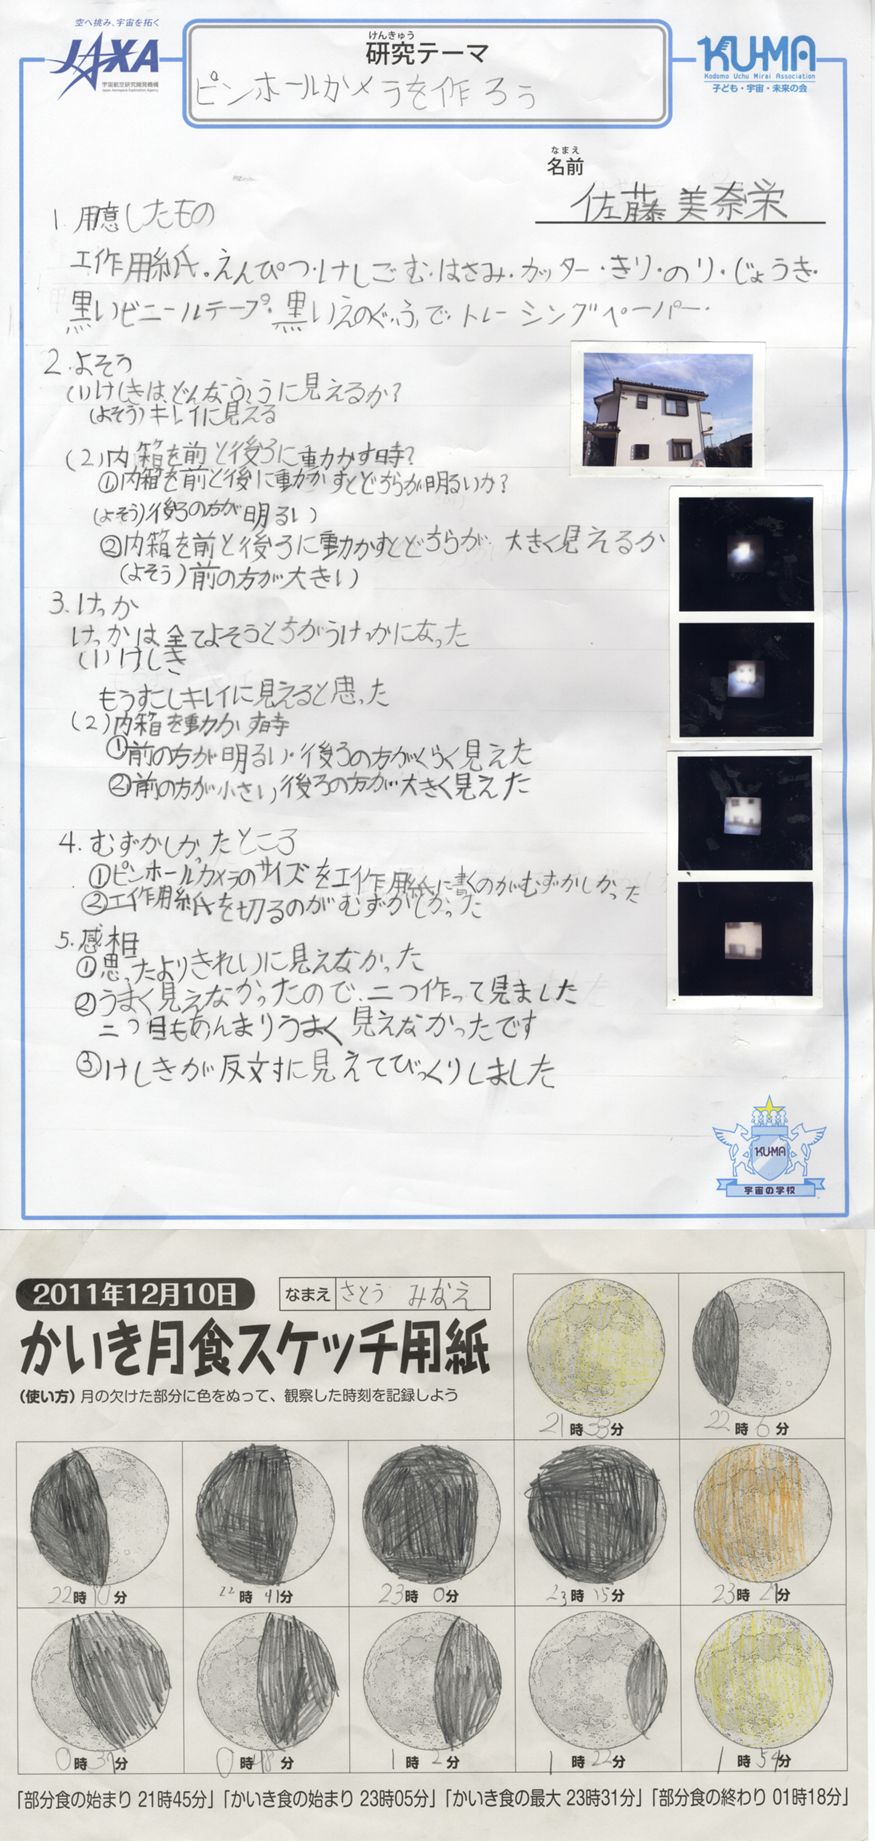 空へ挑み、宇宙を拓く
JAXA
宇宙航空研究開発機構
Japan Aerospace Exploration Agency
けんきゅう
研究テーマ
ピンホールカメラを作ろう
KU-MA
Kodomo Uchu Mirai Association
子ども・宇宙・未来の会
なまえ
名前
佐藤美奈栄
1.用意したもの
工作用紙・えんぴつ・けしごむ・はさみ・カッター・きり・のり・じょうぎ・
黒いビニールテープ・黒いえのぐ・ふで・トレーシングペーパー・
2.よそう
(1)けしきはどんなふうに見えるか?
(よそう)キレイに見える
(2)内箱を前と後ろに動かす時?
①内箱を前と後に動かすとどちらが明るいか?
(よそう)後ろの方が明るい
②内箱を前と後ろに動かすとどちらが大きく見えるか
(よそう)前の方が大きい
3.けっか
けっかは全てよそうとちがうけっかになった
(1)けしき
もうすこしキレイに見えると思った
(2)内箱を動かす時
①前の方が明るい・後ろの方がくらく見えた
②前の方が小さい後ろの方が大きく見えた
4.むずかしかったところ
①ピンホールカメラのサイズを工作用紙に書くのがむずかしかった
②工作用紙を切るのがむずかしかった
5.感想
①思ったよりきれいに見えなかった
②うまく見えなかったので、二つ作って見ました
二つ目もあんまりうまく見えなかったです
③けしきが反対に見えてびっくりしました
KU-MA
宇宙の学校
2011年12月10日
なまえ さとう みなえ
かいき月食スケッチ用紙
(使い方)月の欠けた部分に色をぬって、観察した時刻を記録しよう
21時33分 22時6分
22時10分 22時41分 23時0分 23時15分 23時21分
0時37分 0時48分 1時2分 1時22分 1時54分
「部分食の始まり 21時45分」「かいき食の始まり 23時05分」「かいき食の最大 23時31分」「部分食の終わり 01時18分」